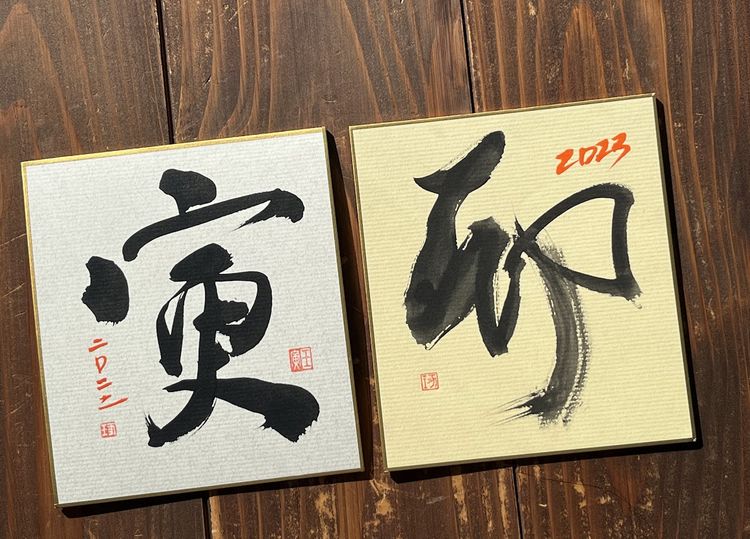 寅
二〇二二
卯
2023